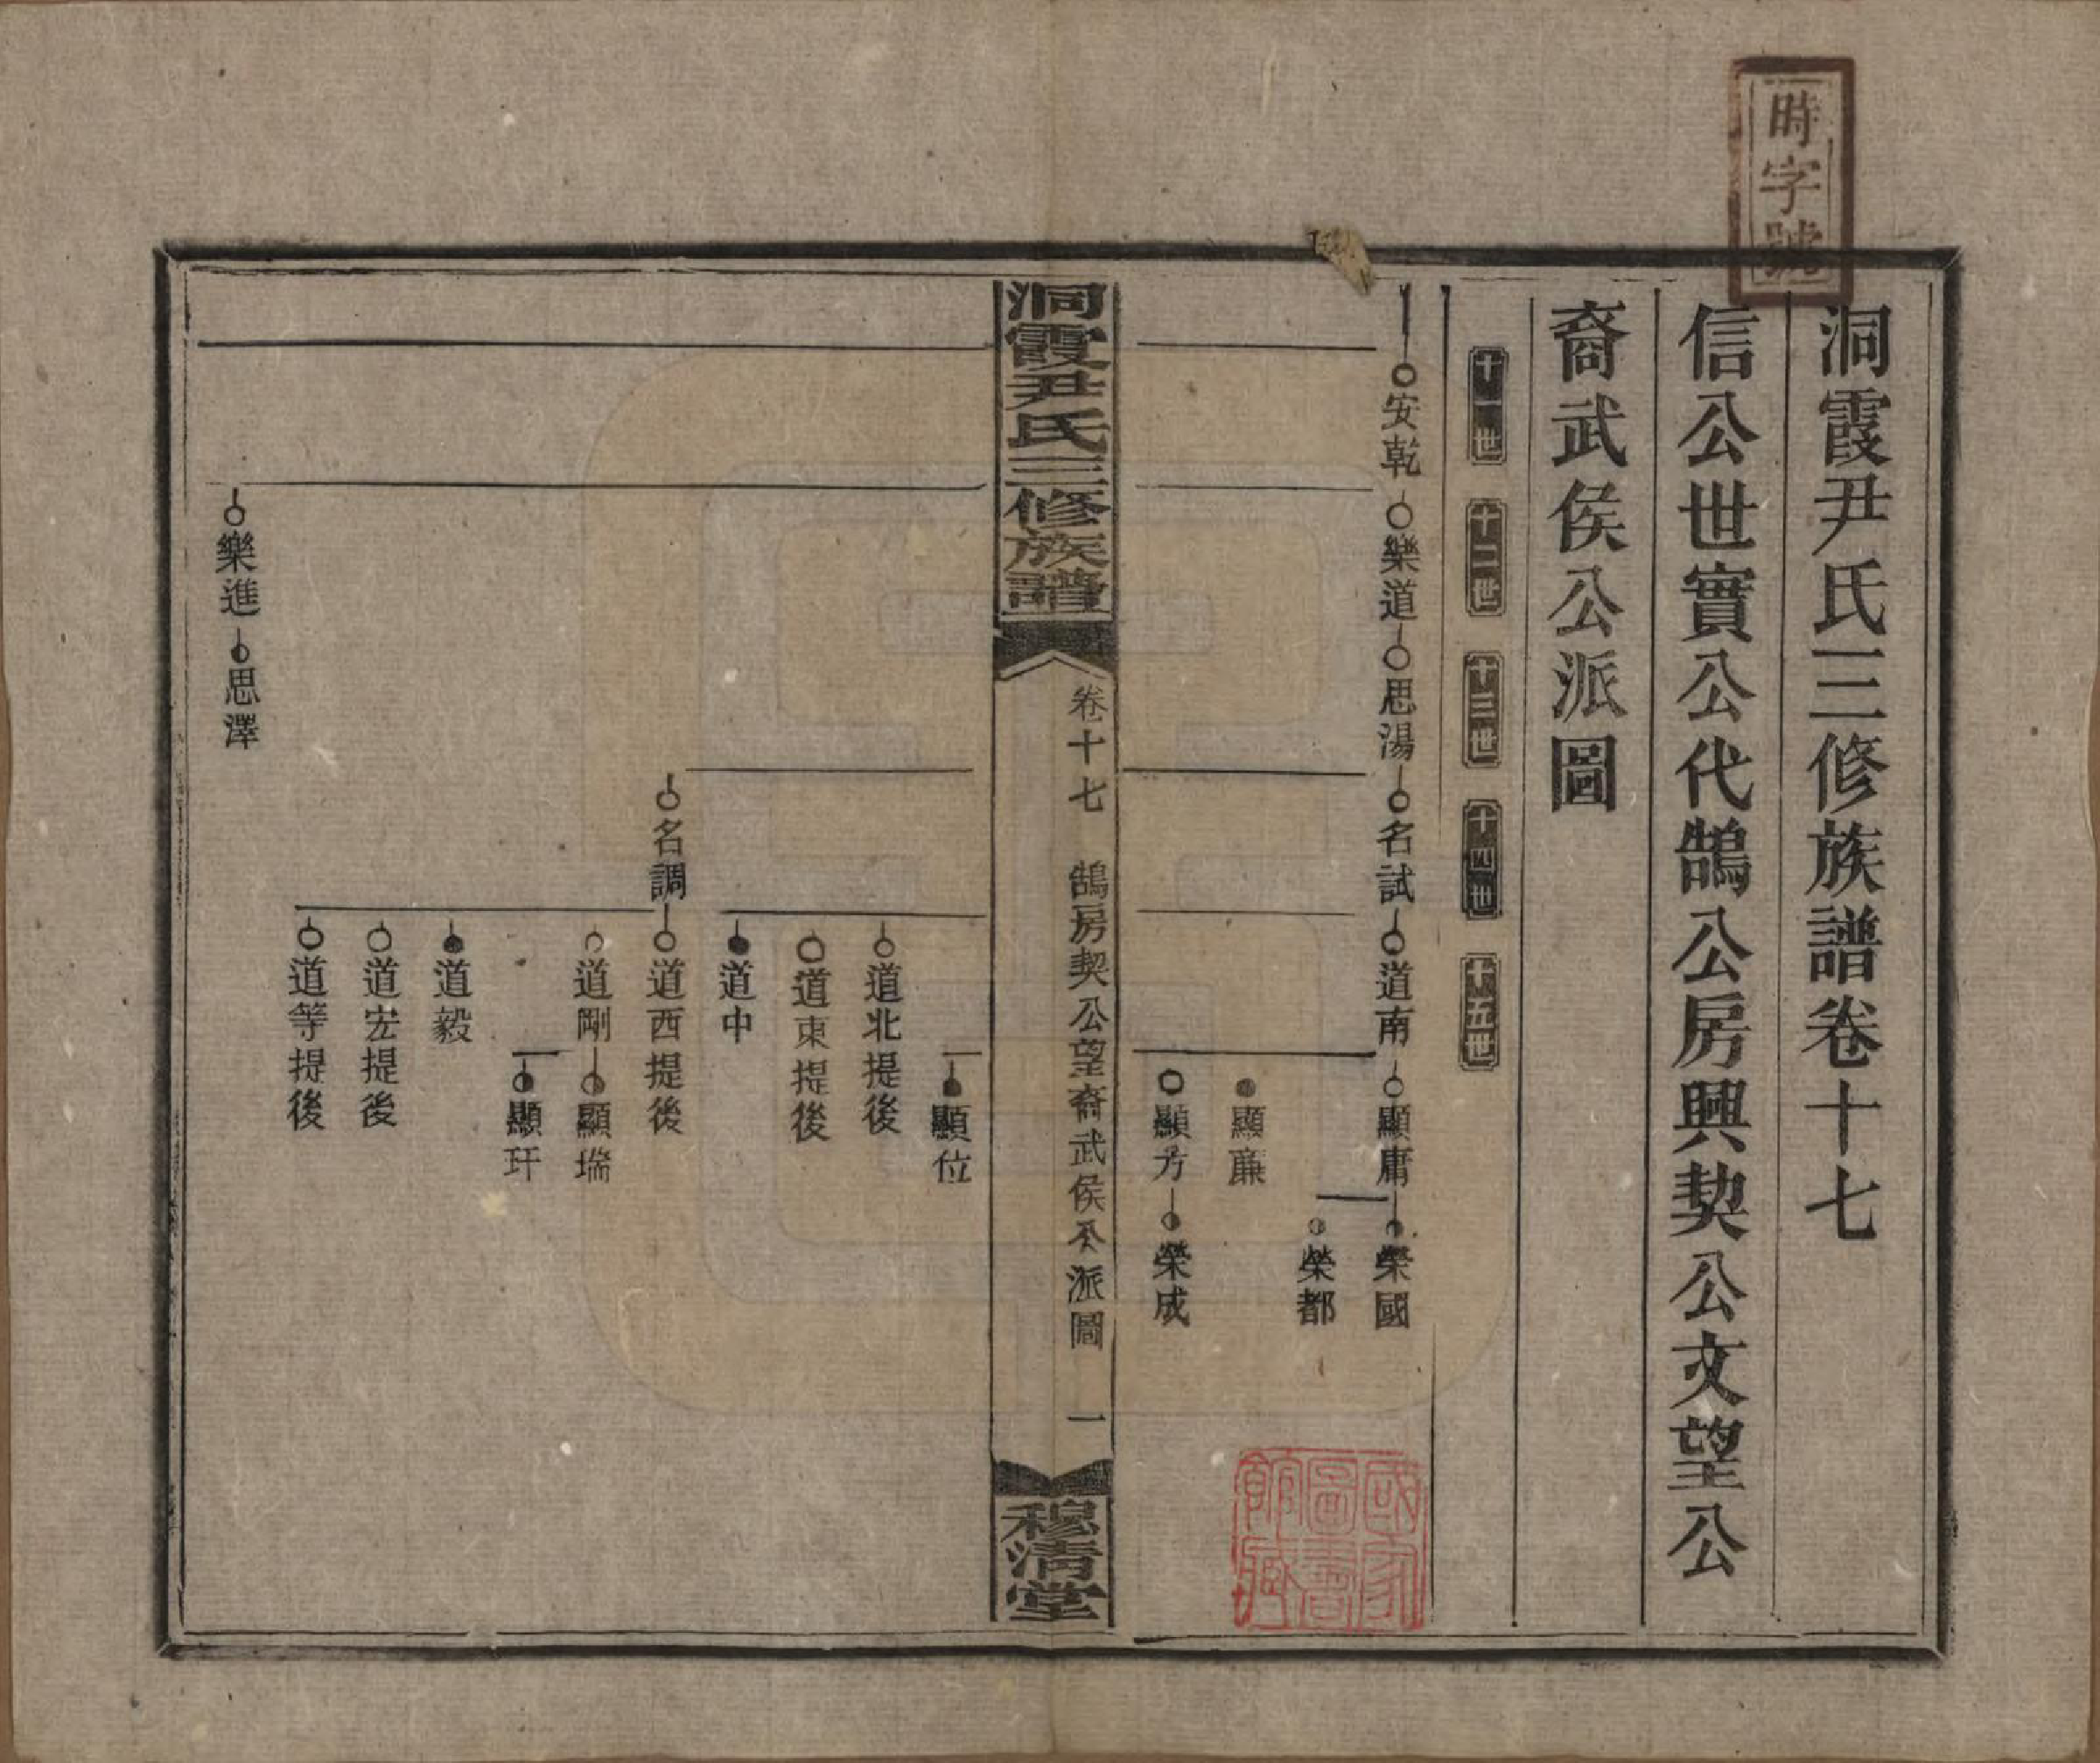 時字號
洞霞尹氏三修族譜卷十七
信公世實公代鵠公房興契公文望公
裔武侯公派圖
十一世 十二世 十三世 十四世 十五世
安乾 樂道 思湯 名試 道南 顯庸 榮國
榮都
顯廉
顯方 榮成
國家圖書館藏
洞霞尹氏三修族譜
卷十七 鵠房契公望裔武侯公派圖 一
穆清堂
顯位
道北提後
道東提後
道中
名調 道西提後
道剛 顯瑞
顯玕
道毅
道宏提後
道等提後
樂進 思澤